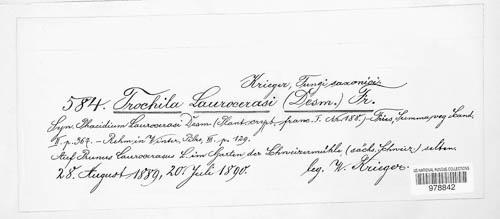 Krieger, Fungi saxonici.
584. Trochila Laurocerasi (Desm.) Fr.
Syn. Phacidium Laurocerasi Desm. (Plant. crypt. franc. I. No. 188.) - Fries, Summa veg. Scand.
II. p. 367. - Rehm in Winter, Pilze III. p. 129.
Auf Prunus Laurocerasus L. im Garten der Schweizermühle (sächs. Schweiz) selten.
28. August 1889, 20. Juli 1890. leg. W. Krieger.
US NATIONAL FUNGUS COLLECTIONS
978842